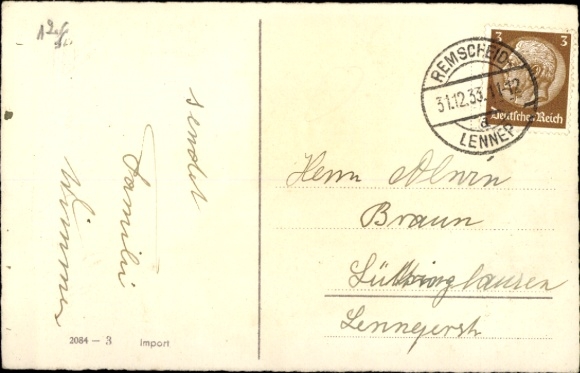 sendet
Familie
3
3
REMSCHEID-
31.12.33.11-12
a
LENNEP
Deutsches Reich
Herrn Alwin
Braun
Lüttringhausen
Lennejerstr
2084 - 3 Import